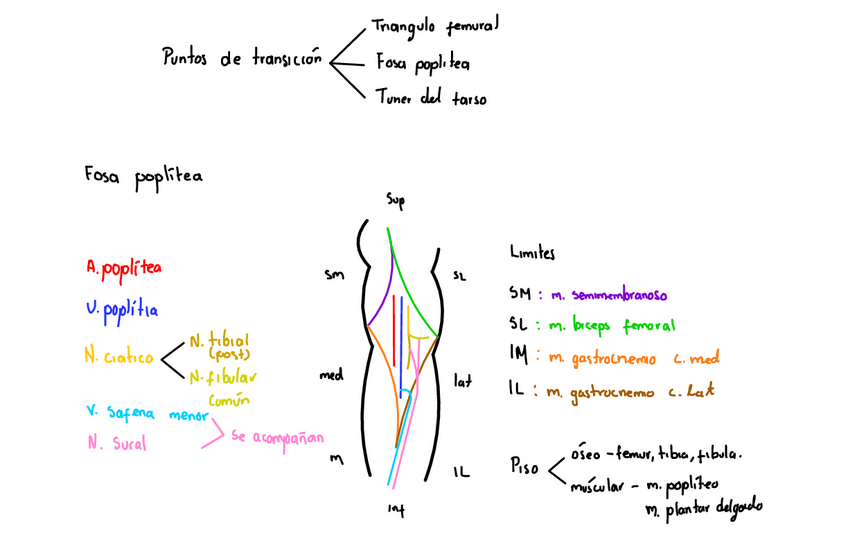 Triangulo femural
Puntos de transición
Fosa poplítea
Tuner del tarso
Fosa poplítea
Sup
Limites
A. poplítea
sm
SL
SM : m. semimembranoso
V. poplítia
SL : m. biceps femoral
N. ciatico
N. tibial
(post)
IM : m. gastrocnemo c. med
N. fibular
común
med
lat
IL : m. gastrocnemo c. lat
V. Safena menor
N. Sural
Se acompañan
m
IL
Piso
óseo - femur, tibia, fibula.
múscular - m. poplíteo
m. plantar delgado
Inf